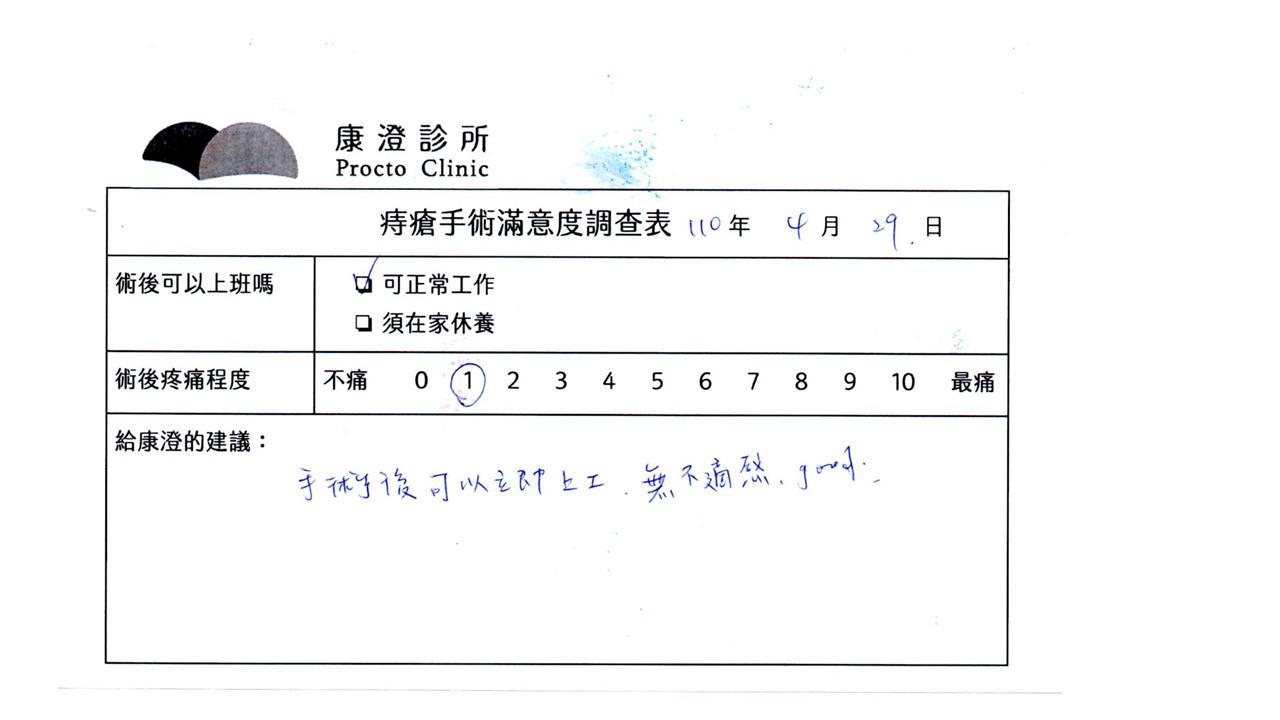 康澄診所
Procto Clinic
痔瘡手術滿意度調查表 110年 4月 29日
術後可以上班嗎
可正常工作
須在家休養
術後疼痛程度 不痛 0 1 2 3 4 5 6 7 8 9 10 最痛
給康澄的建議：
手術後可以立即上工. 無不適感、good.